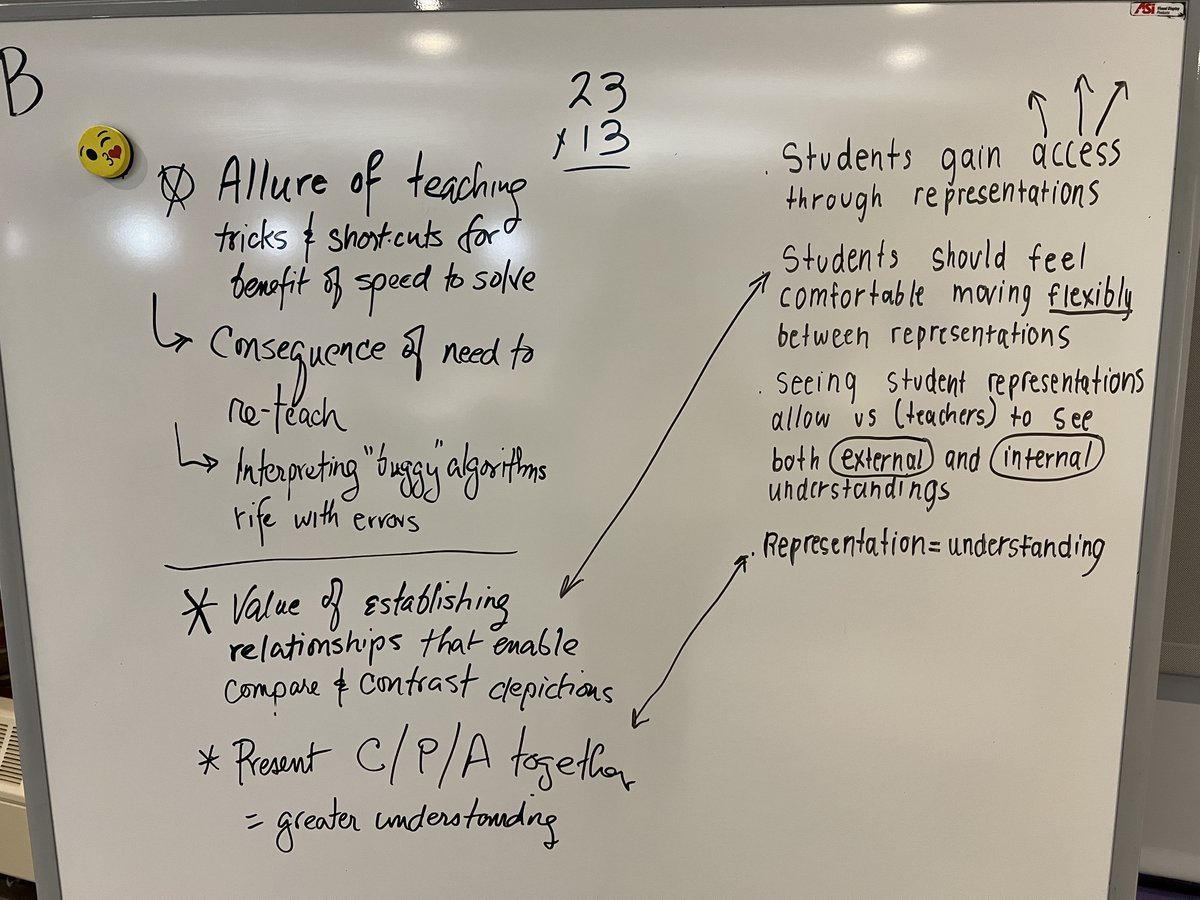 B
23
×13
Allure of teaching
tricks & short-cuts for
benefit of speed to solve
↳ Consequence of need to
re-teach
↳ Interpreting "buggy" algorithms
rife with errors
* Value of establishing
relationships that enable
compare & contrast depictions
* Present C/P/A together
= greater understanding
ASi Visual Display Products
. Students gain access
through representations
Students should feel
comfortable moving flexibly
between representations
. Seeing student representations
allow us (teachers) to see
both external and internal
understandings
. Representation = understanding